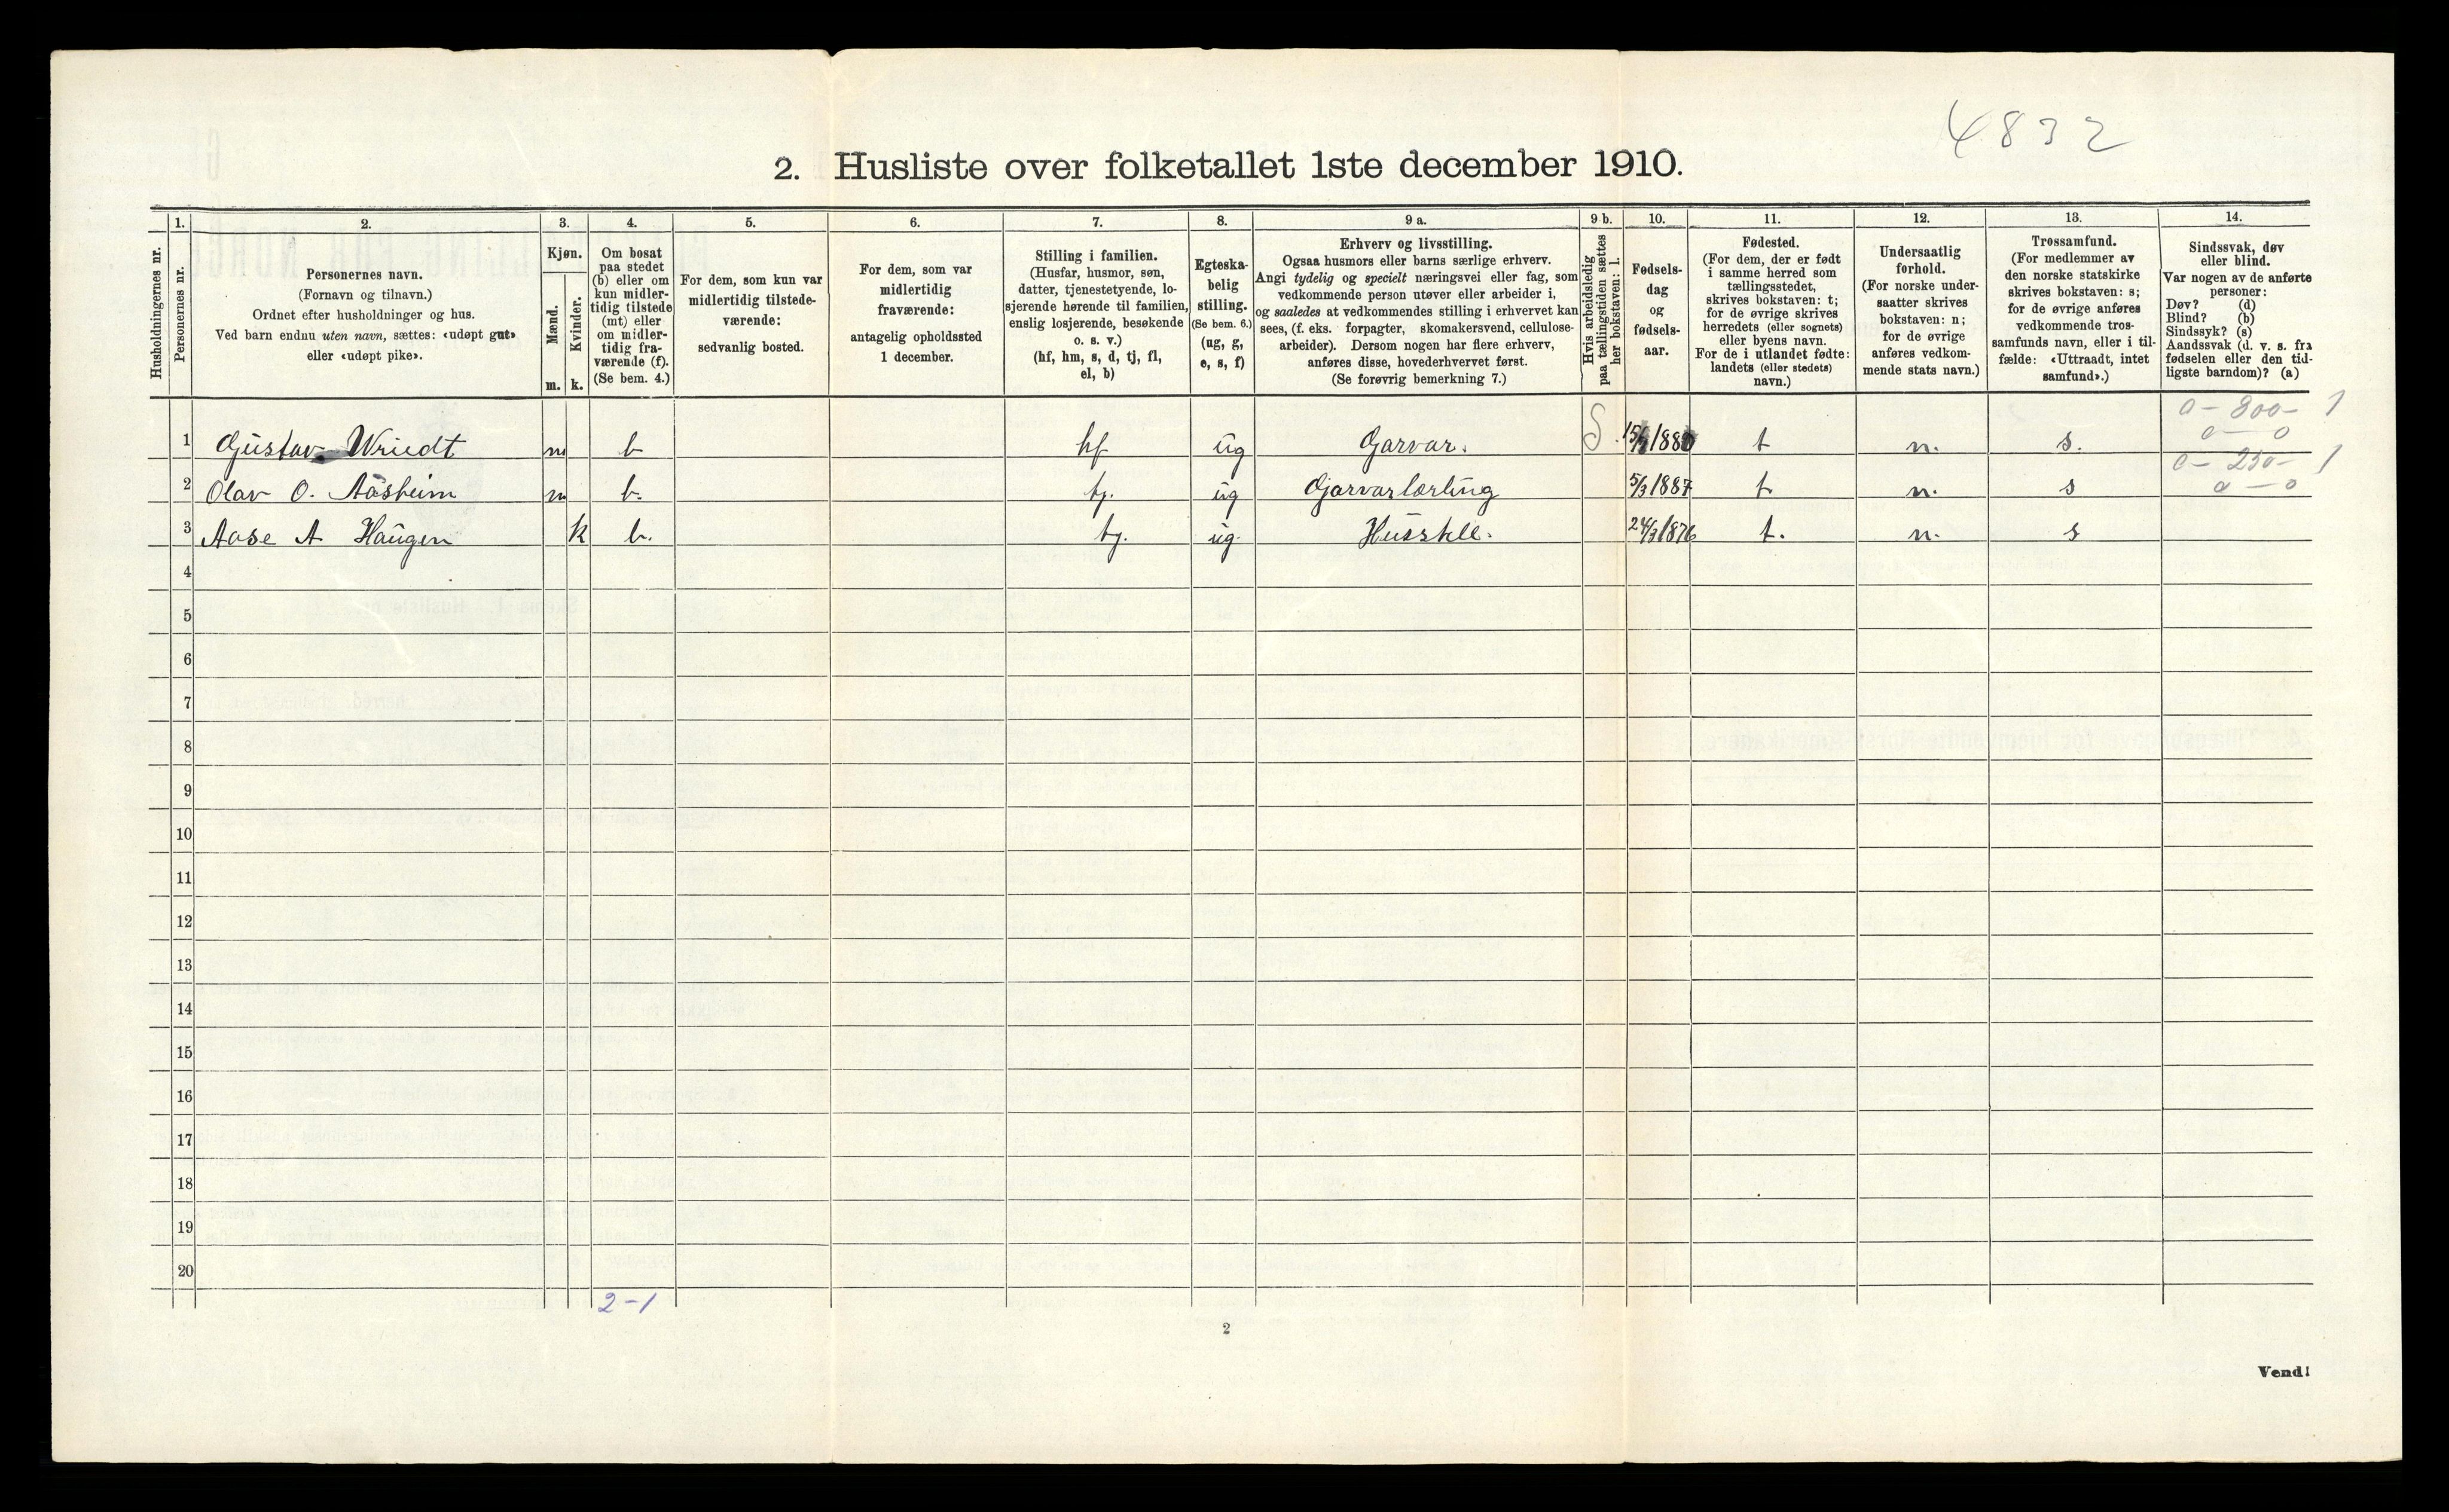 4832
2. Husliste over folketallet 1ste december 1910.
1. 2. 3. 4. 5. 6. 7. 8. 9 a. 9 b. 10. 11. 12. 13. 14.
Husholdningernes nr.
Personernes nr.
Personernes navn.
(Fornavn og tilnavn.)
Ordnet efter husholdninger og hus.
Ved barn endnu uten navn, sættes: «udøpt gut»
eller «udøpt pike».
Kjøn.
Mænd.
Kvinder.
m. k.
Om bosat
paa stedet
(b) eller om
kun midler-
tidig tilstede
(mt) eller
om midler-
tidig fra-
værende (f).
(Se bem. 4.)
For dem, som kun var
midlertidig tilstede-
værende:
sedvanlig bosted.
For dem, som var
midlertidig
fraværende:
antagelig opholdssted
1 december.
Stilling i familien.
(Husfar, husmor, søn,
datter, tjenestetyende, lo-
sjerende hørende til familien,
enslig losjerende, besøkende
o. s. v.)
(hf, hm, s, d, tj, fl,
el, b)
Egteska-
belig
stilling.
(Se bem. 6.)
(ug, g,
e, s, f)
Erhverv og livsstilling.
Ogsaa husmors eller barns særlige erhverv.
Angi tydelig og specielt næringsvei eller fag, som
vedkommende person utøver eller arbeider i,
og saaledes at vedkommendes stilling i erhvervet kan
sees, (f. eks. forpagter, skomakersvend, cellulose-
arbeider). Dersom nogen har flere erhverv,
anføres disse, hovederhvervet først.
(Se forøvrig bemerkning 7.)
Hvis arbeidsledig
paa tællingstiden sættes
her bokstaven: l.
Fødsels-
dag
og
fødsels-
aar.
Fødested.
(For dem, der er født
i samme herred som
tællingsstedet,
skrives bokstaven: t;
for de øvrige skrives
herredets (eller sognets)
eller byens navn.
For de i utlandet fødte:
landets (eller stedets)
navn.)
Undersaatlig
forhold.
(For norske under-
saatter skrives
bokstaven: n;
for de øvrige
anføres vedkom-
mende stats navn.)
Trossamfund.
(For medlemmer av
den norske statskirke
skrives bokstaven: s;
for de øvrige anføres
vedkommende tros-
samfunds navn, eller i til-
fælde: «Uttraadt, intet
samfund».)
Sindssvak, døv
eller blind.
Var nogen av de anførte
personer:
Døv? (d)
Blind? (b)
Sindssyk? (s)
Aandssvak (d. v. s. fra
fødselen eller den tid-
ligste barndom)? (a)
0 - 800 - 1
1 Gustav Wriedt m b hf ug Garvar. S. 1880 t n. s. 0 - 0
0 - 250 - 1
2 Olav O. Aasheim m b. tj. ug Garvarlærling 5/3 1887 t. n. s 0 - 0
3 Aase A Haugen k b. tj. ug. Husstell. 24/3 1876 t. n. s
4
5
6
7
8
9
10
11
12
13
14
15
16
17
18
19
20
2-1
2
Vend!